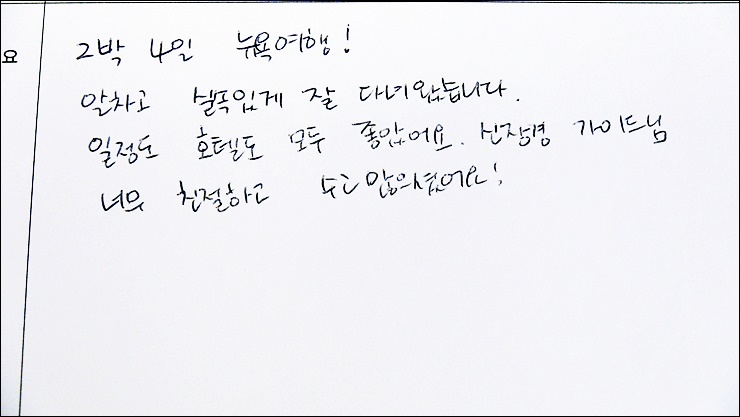 요
2박 4일 뉴욕여행!
알차고 실속있게 잘 다녀왔습니다.
일정도 호텔도 모두 좋았어요. 신장경 가이드님
너무 친절하고 수고많으셨어요!